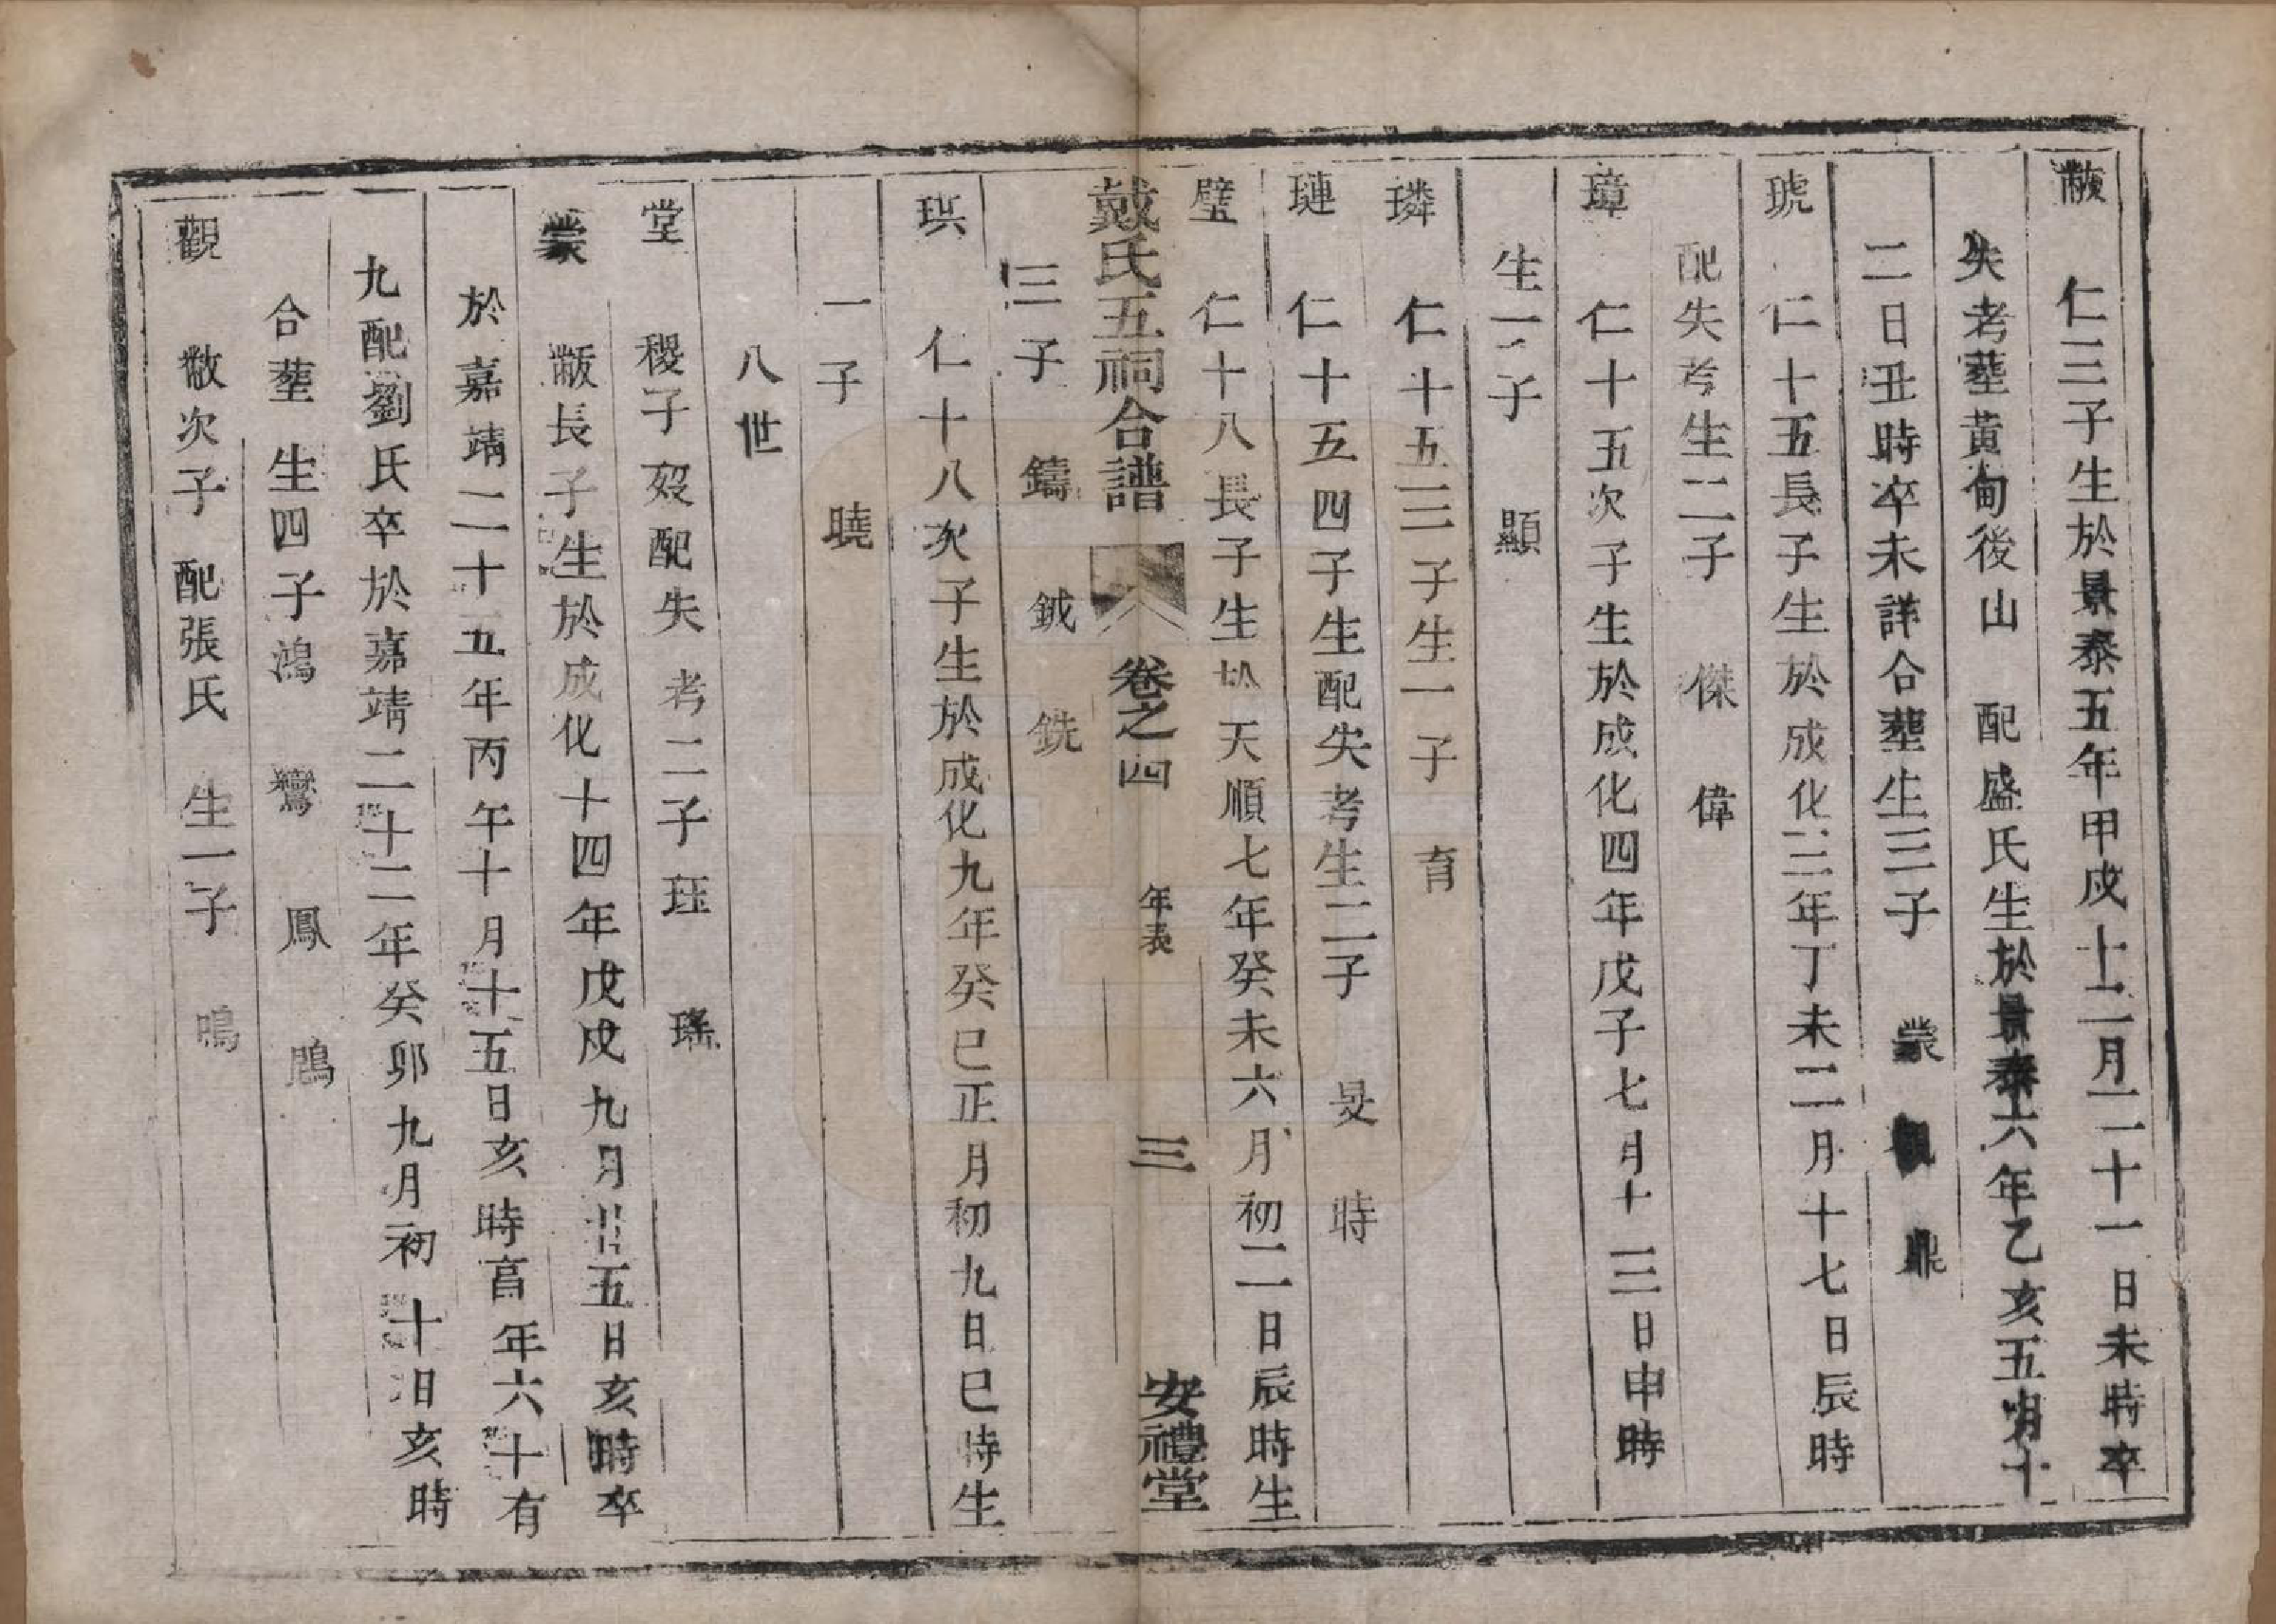 黻　仁三子生於景泰五年甲戍十二月二十一日未時卒
失考塟黃甸後山　配盛氏生於景泰六年乙亥五月十
二日丑時卒未詳合塟生三子　蒙　觀　鼎
琥　仁十五長子生於成化三年丁未二月十七日辰時
配失考生二子　傑　偉
璋　仁十五次子生於成化四年戊子七月十三日申時
生一子　顯
璘　仁十五三子生一子　育
璉　仁十五四子生配失考生二子　旻　時
璧　仁十八長子生於天順七年癸未六月初二日辰時生
戴氏五祠合譜　卷之四　年表　三　安禮堂
三子　鑄　鉞　銑
珙　仁十八次子生於成化九年癸巳正月初九日巳時生
一子　曉
八世
堂　稷子歿配失考二子珏　瑤
蒙　黻長子生於成化十四年戊戍九月廿五日亥時卒
於嘉靖二十五年丙午十月十五日亥時享年六十有
九配劉氏卒於嘉靖二十二年癸卯九月初十日亥時
合塟生四子鴻　鸞　鳳　鵰
觀　黻次子配張氏　生一子　鳴